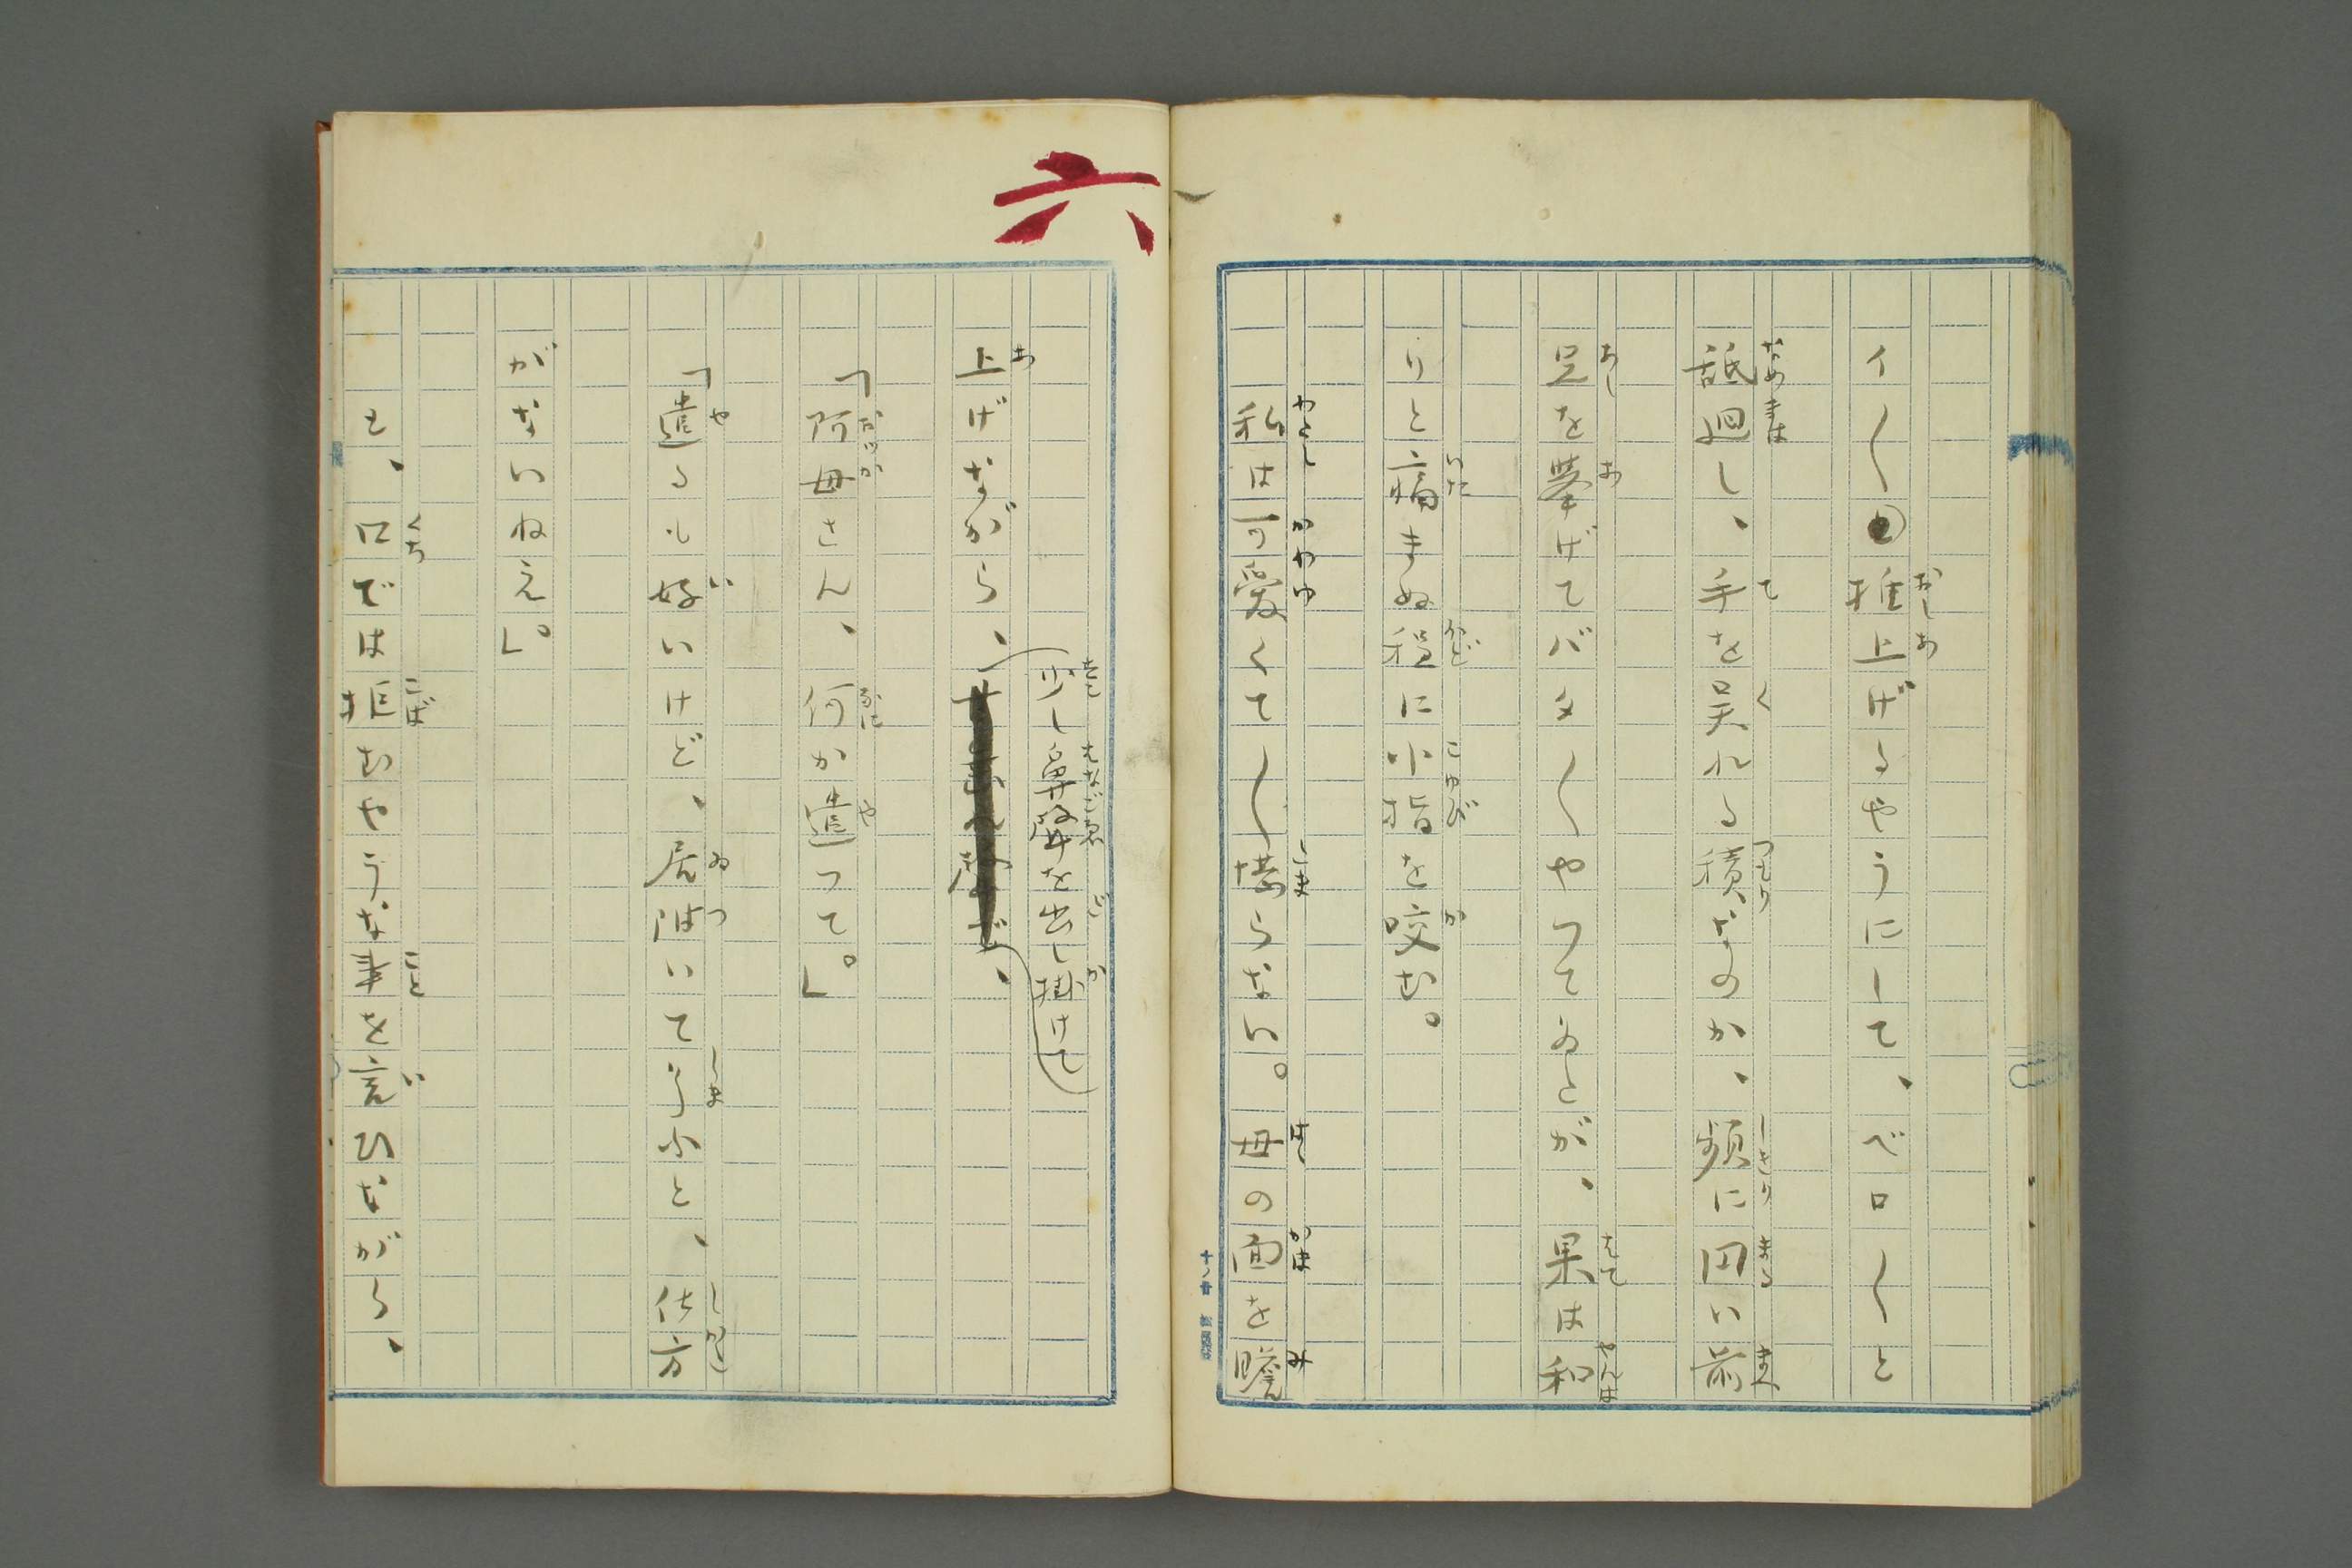 イ〱推上げるやうにして、ベロ〱と
舐廻し、手を呉れる積なのか、頻に円い前
足を挙げてバタ〱やつてゐたが、果は和
りと痛まぬ程に小指を咬む。
私は可愛くて〱堪らない。母の面を瞻
六
上げながら、少し鼻声を出し掛けて
「阿母さん、何か遣つて。」
「遣るも好いけど、居附いて了ふと、仕方
がないねえ。」
と、口では拒むやうな事を言ひながら、